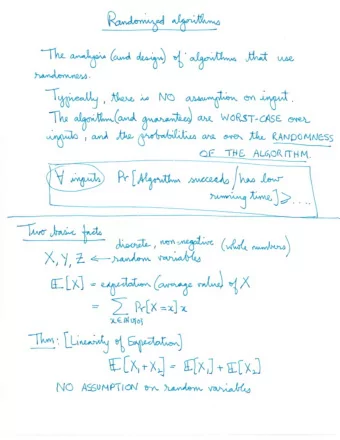 Randomized algorithms
The analysis (and design) of algorithms that use
randomness.
Typically, there is NO assumption on input.
The algorithm (and guarantees) are WORST-CASE over
inputs, and the probabilities are over the RANDOMNESS
OF THE ALGORITHM.
∀ inputs Pr[Algorithm succeeds/has low
running time] ≥ ....
Two basic facts
discrete, non-negative (whole numbers)
X, Y, Z ← random variables
𝔼[X] = expectation (average value) of X
= ∑ Pr[X = x] x
x ∈ ℕ∪{0}
Thm: [Linearity of Expectation]
𝔼[X₁+X₂] = 𝔼[X₁] + 𝔼[X₂]
NO ASSUMPTION on random variables